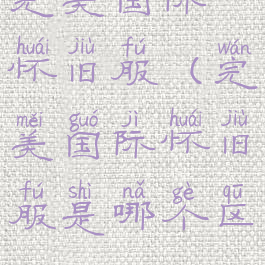 完美国际
huái jiù fú wán
怀旧服（完
měi guó jì huái jiù
美国际怀旧
fú shì nǎ gè qū
服是哪个区